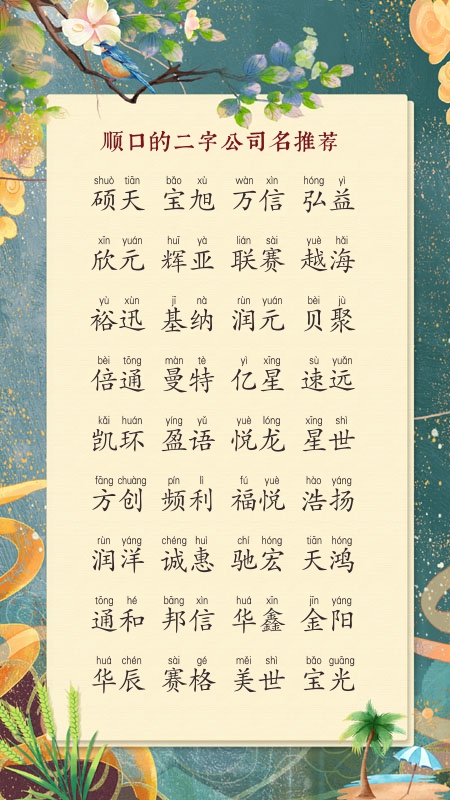 顺口的二字公司名推荐
shuò tiān bǎo xù wàn xìn hóng yì
硕天 宝旭 万信 弘益
xīn yuán huī yà lián sài yuè hǎi
欣元 辉亚 联赛 越海
yù xùn jī nà rùn yuán bèi jù
裕迅 基纳 润元 贝聚
bèi tōng màn tè yì xīng sù yuǎn
倍通 曼特 亿星 速远
kǎi huán yíng yǔ yuè lóng xīng shì
凯环 盈语 悦龙 星世
fāng chuàng pín lì fú yuè hào yáng
方创 频利 福悦 浩扬
rùn yáng chéng huì chí hóng tiān hóng
润洋 诚惠 驰宏 天鸿
tōng hé bāng xìn huá xīn jīn yáng
通和 邦信 华鑫 金阳
huá chén sài gé měi shì bǎo guāng
华辰 赛格 美世 宝光